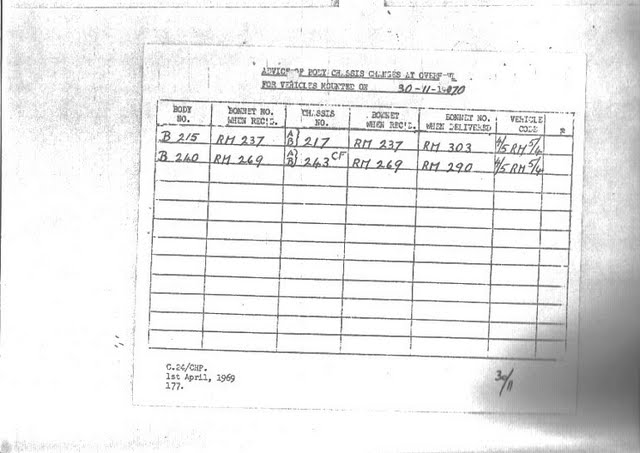 ADVICE OF BODY/CHASSIS CHANGES AT OVERHAUL
FOR VEHICLES MOUNTED ON 30-11-1970
BODY NO. BONNET NO. WHEN REC'D. CHASSIS NO. BONNET WHEN REC'D. BONNET NO. WHEN DELIVERED VEHICLE CODE R
B 215 RM 237 A/B} 217 RM 237 RM 303 4/5 RM 5/4
B 240 RM 269 A/B} 243 CF RM 269 RM 290 4/5 RM 5/4
C.24/CHP.
1st April, 1969
177.
30/11